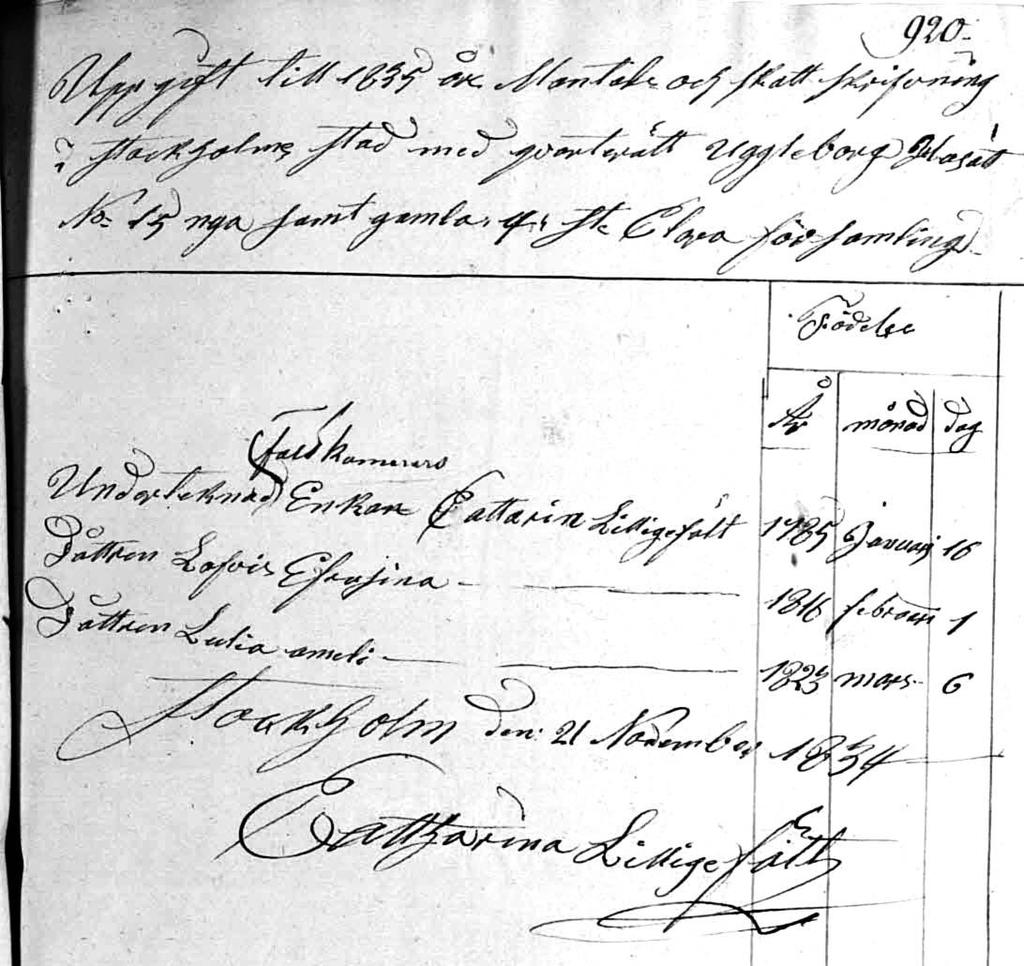 920.
Uppgift till 1835 års Mantals och skatt skrifvning
i stockholms stad med qvarterätt Uggleborg
No 15 nya samt gamla 4: St. Clara församling
Födelse
År månad dag
Fält kamerers
Underteknad Enkan Cattarin Littigefält 1785 Januari 16
Dåttren Lofvis Efrosina 1816 februari 1
Dåttren Lulia ameli 1823 mars 6
Stockholm den: 21 November 1834
Catharina Littigefält